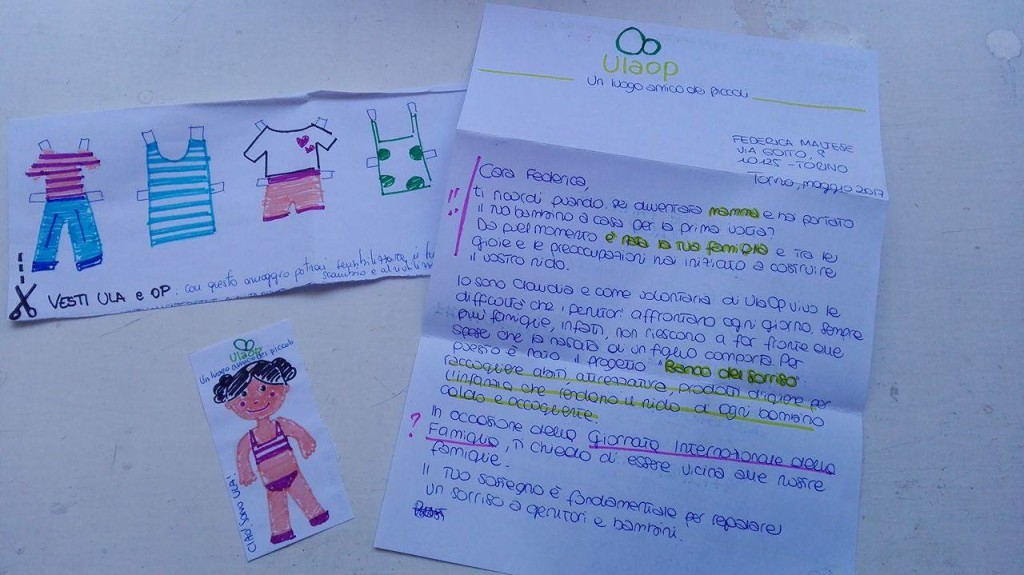 VESTI ULA E OP: con questo omaggio potrai sensibilizzare il tu
scambio e al riutilizz
Ulaop
Un luogo amico dei piccoli
CIAO! SONO ULA!
Ulaop
Un luogo amico dei piccoli
FEDERICA MALTESE
VIA GOITO, 8
10125 - TORINO
Torino, maggio 2017
Cara Federica,
!! ti ricordi quando sei diventata mamma e hai portato
il tuo bambino a casa per la prima volta?
Da quel momento è nata la tua famiglia e tra le
gioie e le preoccupazioni hai iniziato a costruire
il vostro nido.
Io sono Claudia e come volontaria di UlaOp vivo le
difficoltà che i genitori affrontano ogni giorno. Sempre
più famiglie, infatti, non riescono a far fronte alle
spese che la nascita di un figlio comporta. Per
questo è nato il progetto "Banco del Sorriso"
raccogliere abiti, attrezzatura, prodotti d'igiene per
l'infanzia che rendono il nido di ogni bambino
caldo e accogliente.
? In occasione della Giornata Internazionale della
Famiglia, ti chiedo di essere vicina alle nostre
famiglie.
Il tuo sostegno è fondamentale per regalare
un sorriso a genitori e bambini.